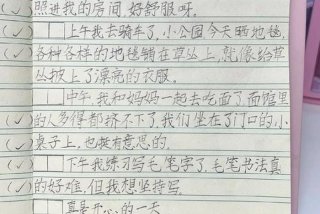 照进我的房间,好舒服呀。
上午我去骑车了,小公园今天晒地毯,
各种各样的地毯铺在草丛上,就像给草
丛披上了漂亮的衣服。
中午,我和妈妈一起去吃面了,面馆里
的人多得都挤不下了,我们坐在了门口的小
桌子上,也挺有意思的。
下午我练习写毛笔字了,毛笔书法真
的好难,但我想坚持写。
真是开心的一天